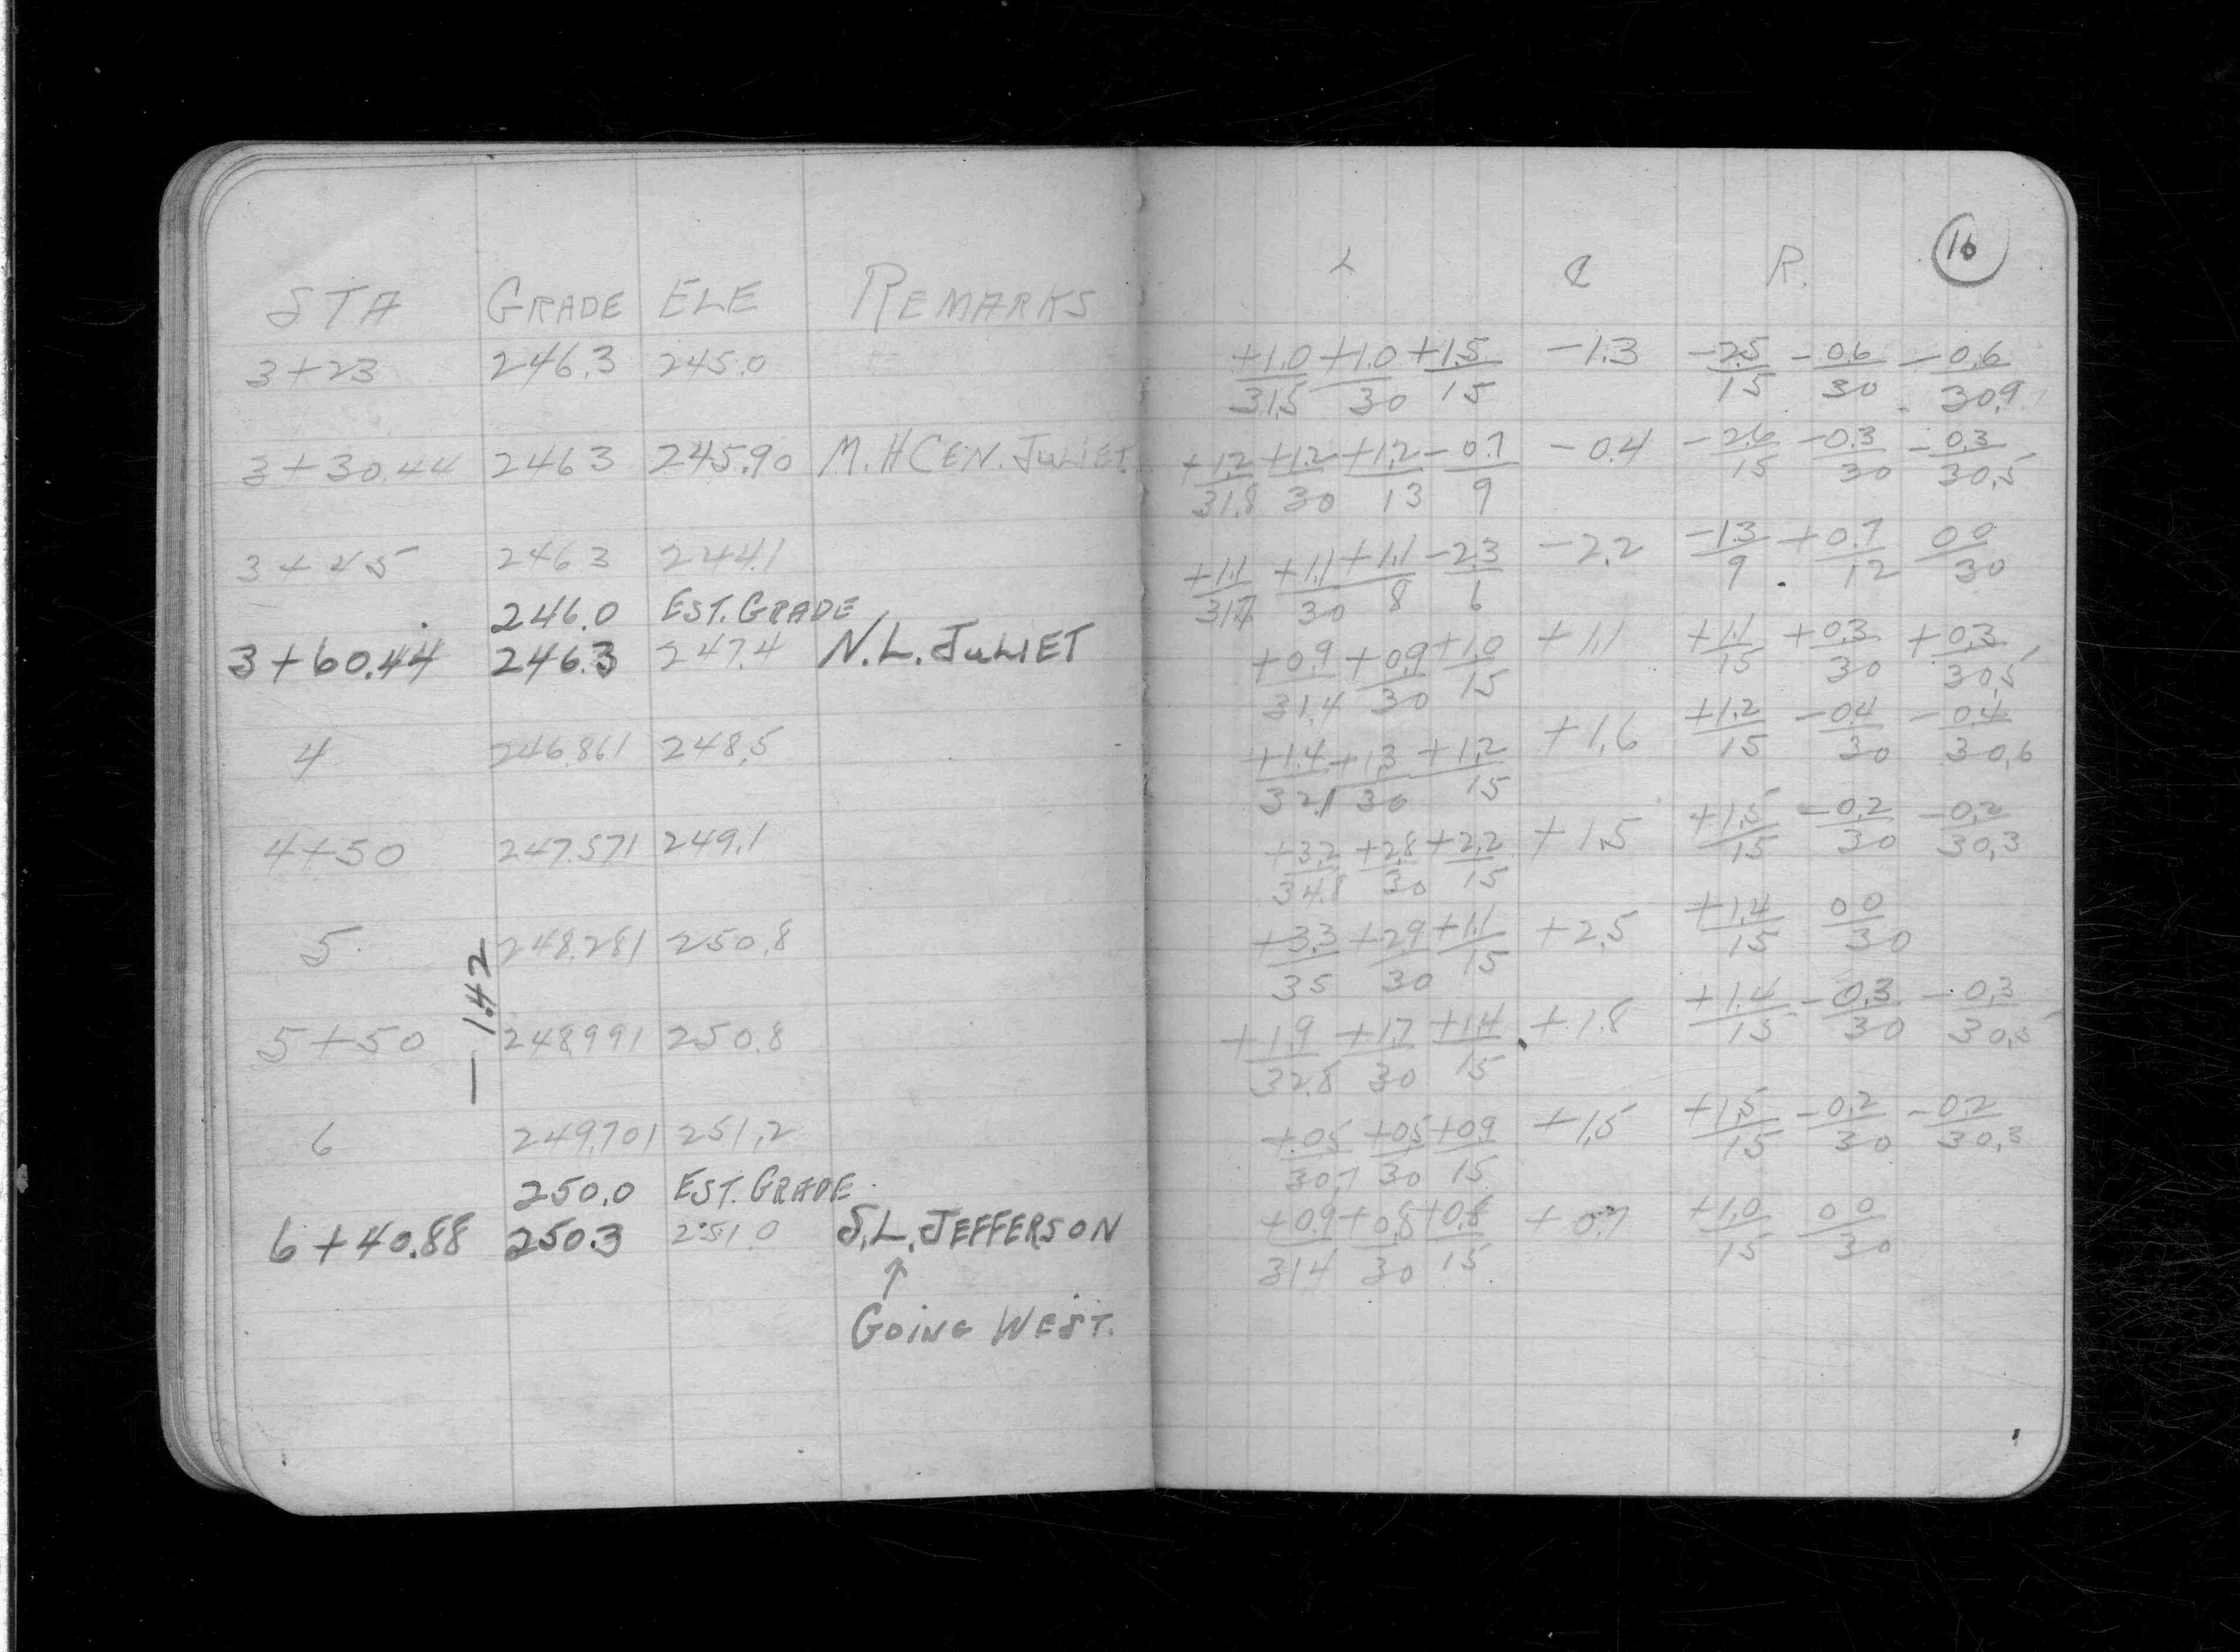 STA GRADE ELE REMARKS
3+23 246.3 245.0
3+30.44 246.3 245.90 M.H CEN. JULIET.
3+45 246.3 244.1
246.0 EST. GRADE
3+60.44 246.3 247.4 N.L. JULIET
4 246.861 248.5
4+50 247.571 249.1
5 248.281 250.8
— 1.42
5+50 248.991 250.8
6 249.701 251.2
250.0 EST. GRADE
6+40.88 250.3 251.0 S.L. JEFFERSON
↑
GOING WEST.
16
L ℄ R.
+1.0/31.5 +1.0/30 +1.5/15 -1.3 -2.5/15 -0.6/30 -0.6/30.9
+1.2/31.8 +1.2/30 +1.2/13 -0.7/9 -0.4 -2.6/15 -0.3/30 -0.3/30.5
+1.1/31.7 +1.1/30 +1.1/8 -2.3/6 -2.2 -1.3/9 +0.7/12 0.0/30
+0.9/31.4 +0.9/30 +1.0/15 +1.1 +1.1/15 +0.3/30 +0.3/30.5
+1.4/32.1 +1.3/30 +1.2/15 +1.6 +1.2/15 -0.4/30 -0.4/30.6
+3.2/34.8 +2.8/30 +2.2/15 +1.5 +1.5/15 -0.2/30 -0.2/30.3
+3.3/35 +2.9/30 +1.1/15 +2.5 +1.4/15 0.0/30
+1.9/32.8 +1.7/30 +1.4/15 +1.8 +1.4/15 -0.3/30 -0.3/30.5
+.05/30.7 +0.5/30 +0.9/15 +1.5 +1.5/15 -0.2/30 -0.2/30.3
+0.9/31.4 +0.8/30 +0.8/15 +0.7 +1.0/15 0.0/30